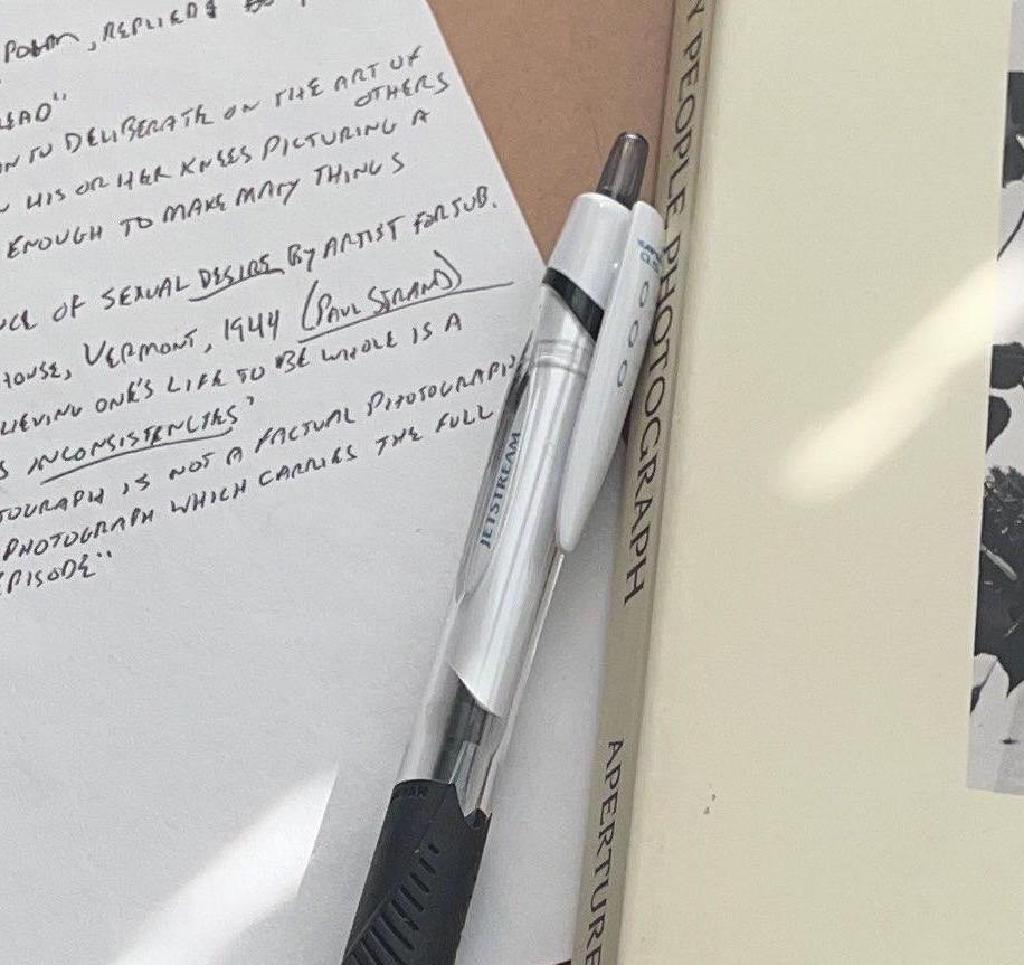 POEM, REPLIED
EAD"
N TO DELIBERATE ON THE ART OF
OTHERS
HIS OR HER KNEES PICTURING A
ENOUGH TO MAKE MANY THINGS
OF SEXUAL DESIRE BY ARTIST FOR SUB.
HOUSE, VERMONT, 1944 (PAUL STRAND)
IEVING ONE'S LIFE TO BE WHOLE IS A
S INCONSISTENCIES'
TOGRAPH IS NOT A FACTUAL PHOTOGRAPH
PHOTOGRAPH WHICH CARRIES THE FULL
EPISODE"
JETSTREAM
Y PEOPLE PHOTOGRAPH
APERTURE